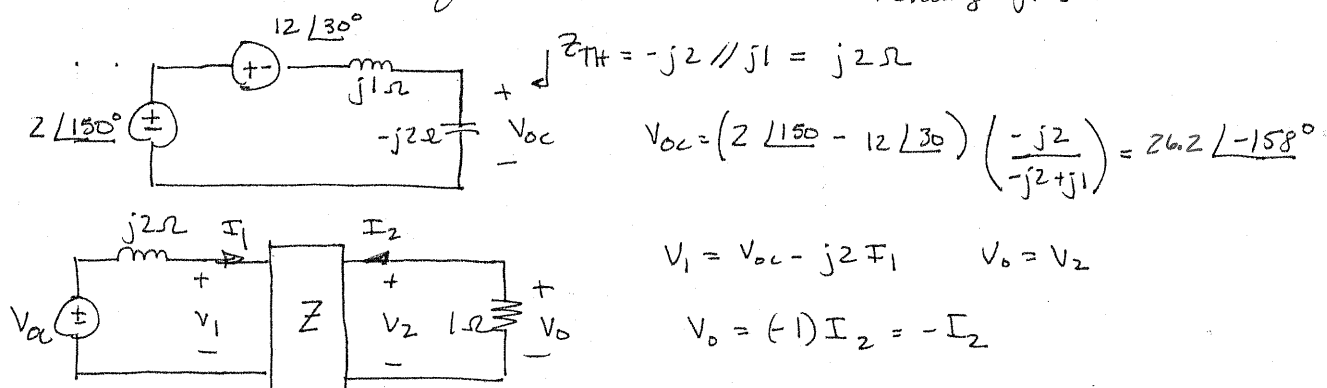 12 ∠30°
+ -
j1Ω
2 ∠150°
±
-j2Ω
+
Voc
-
Z_TH = -j2 // j1 = j2Ω
Voc = (2 ∠150 - 12 ∠30) (-j2 / -j2+j1) = 26.2 ∠-158°
j2Ω
I1
I2
Voc
±
+
V1
-
Z
+
V2
-
1Ω
+
Vo
-
V1 = Voc - j2 I1
Vo = V2
Vo = (-1) I2 = -I2